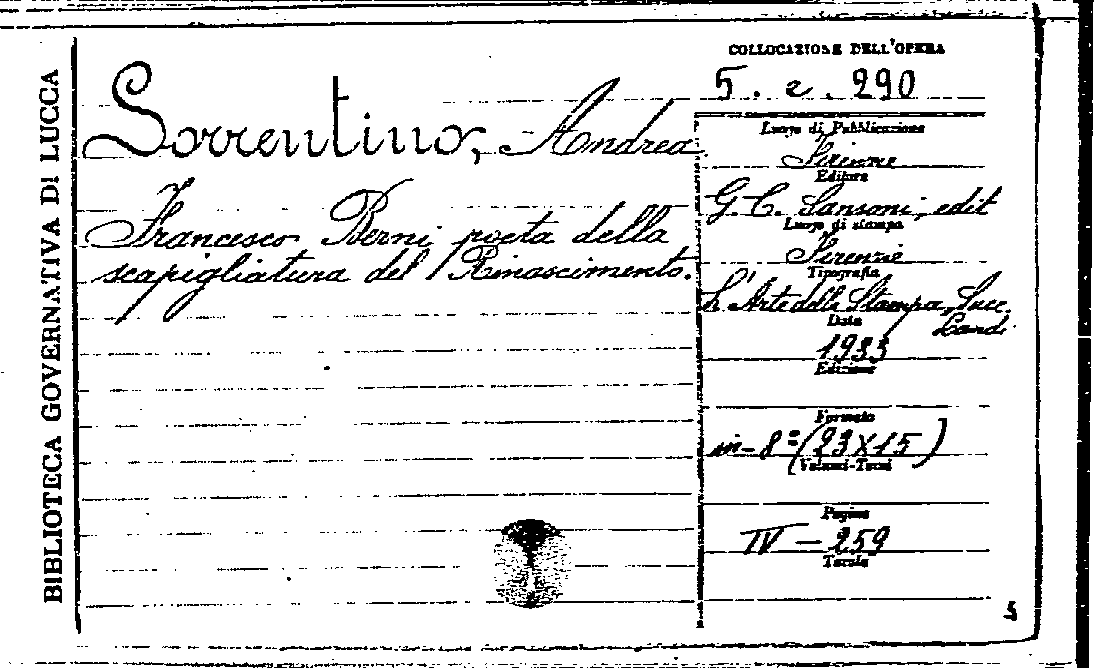 BIBLIOTECA GOVERNATIVA DI LUCCA
COLLOCAZIONE DELL'OPERA
5. e. 290
Sorrentino, Andrea
Francesco Berni poeta della
scapigliatura del Rinascimento.
Luogo di Pubblicazione
Firenze
Editore
G. C. Sansoni, edit
Luogo di stampa
Firenze
Tipografia
L'Arte della Stampa, Succ.
Landi
Data
1933
Edizione
Formato
in-8º (23X15)
Volumi-Tomi
Pagine
IV - 259
Tavole
5